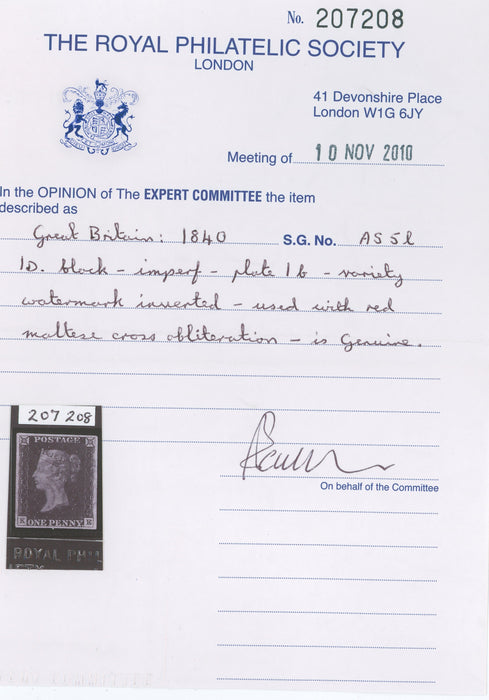 No. 207208
THE ROYAL PHILATELIC SOCIETY
LONDON
41 Devonshire Place
London W1G 6JY
Meeting of 10 NOV 2010
In the OPINION of The EXPERT COMMITTEE the item
described as
Great Britain: 1840 S.G. No. AS5l
1D. black - imperf - plate 1b - variety
watermark inverted - used with red
maltese cross obliteration - is Genuine.
207 208
POSTAGE
K ONE PENNY
ROYAL PHIL
On behalf of the Committee